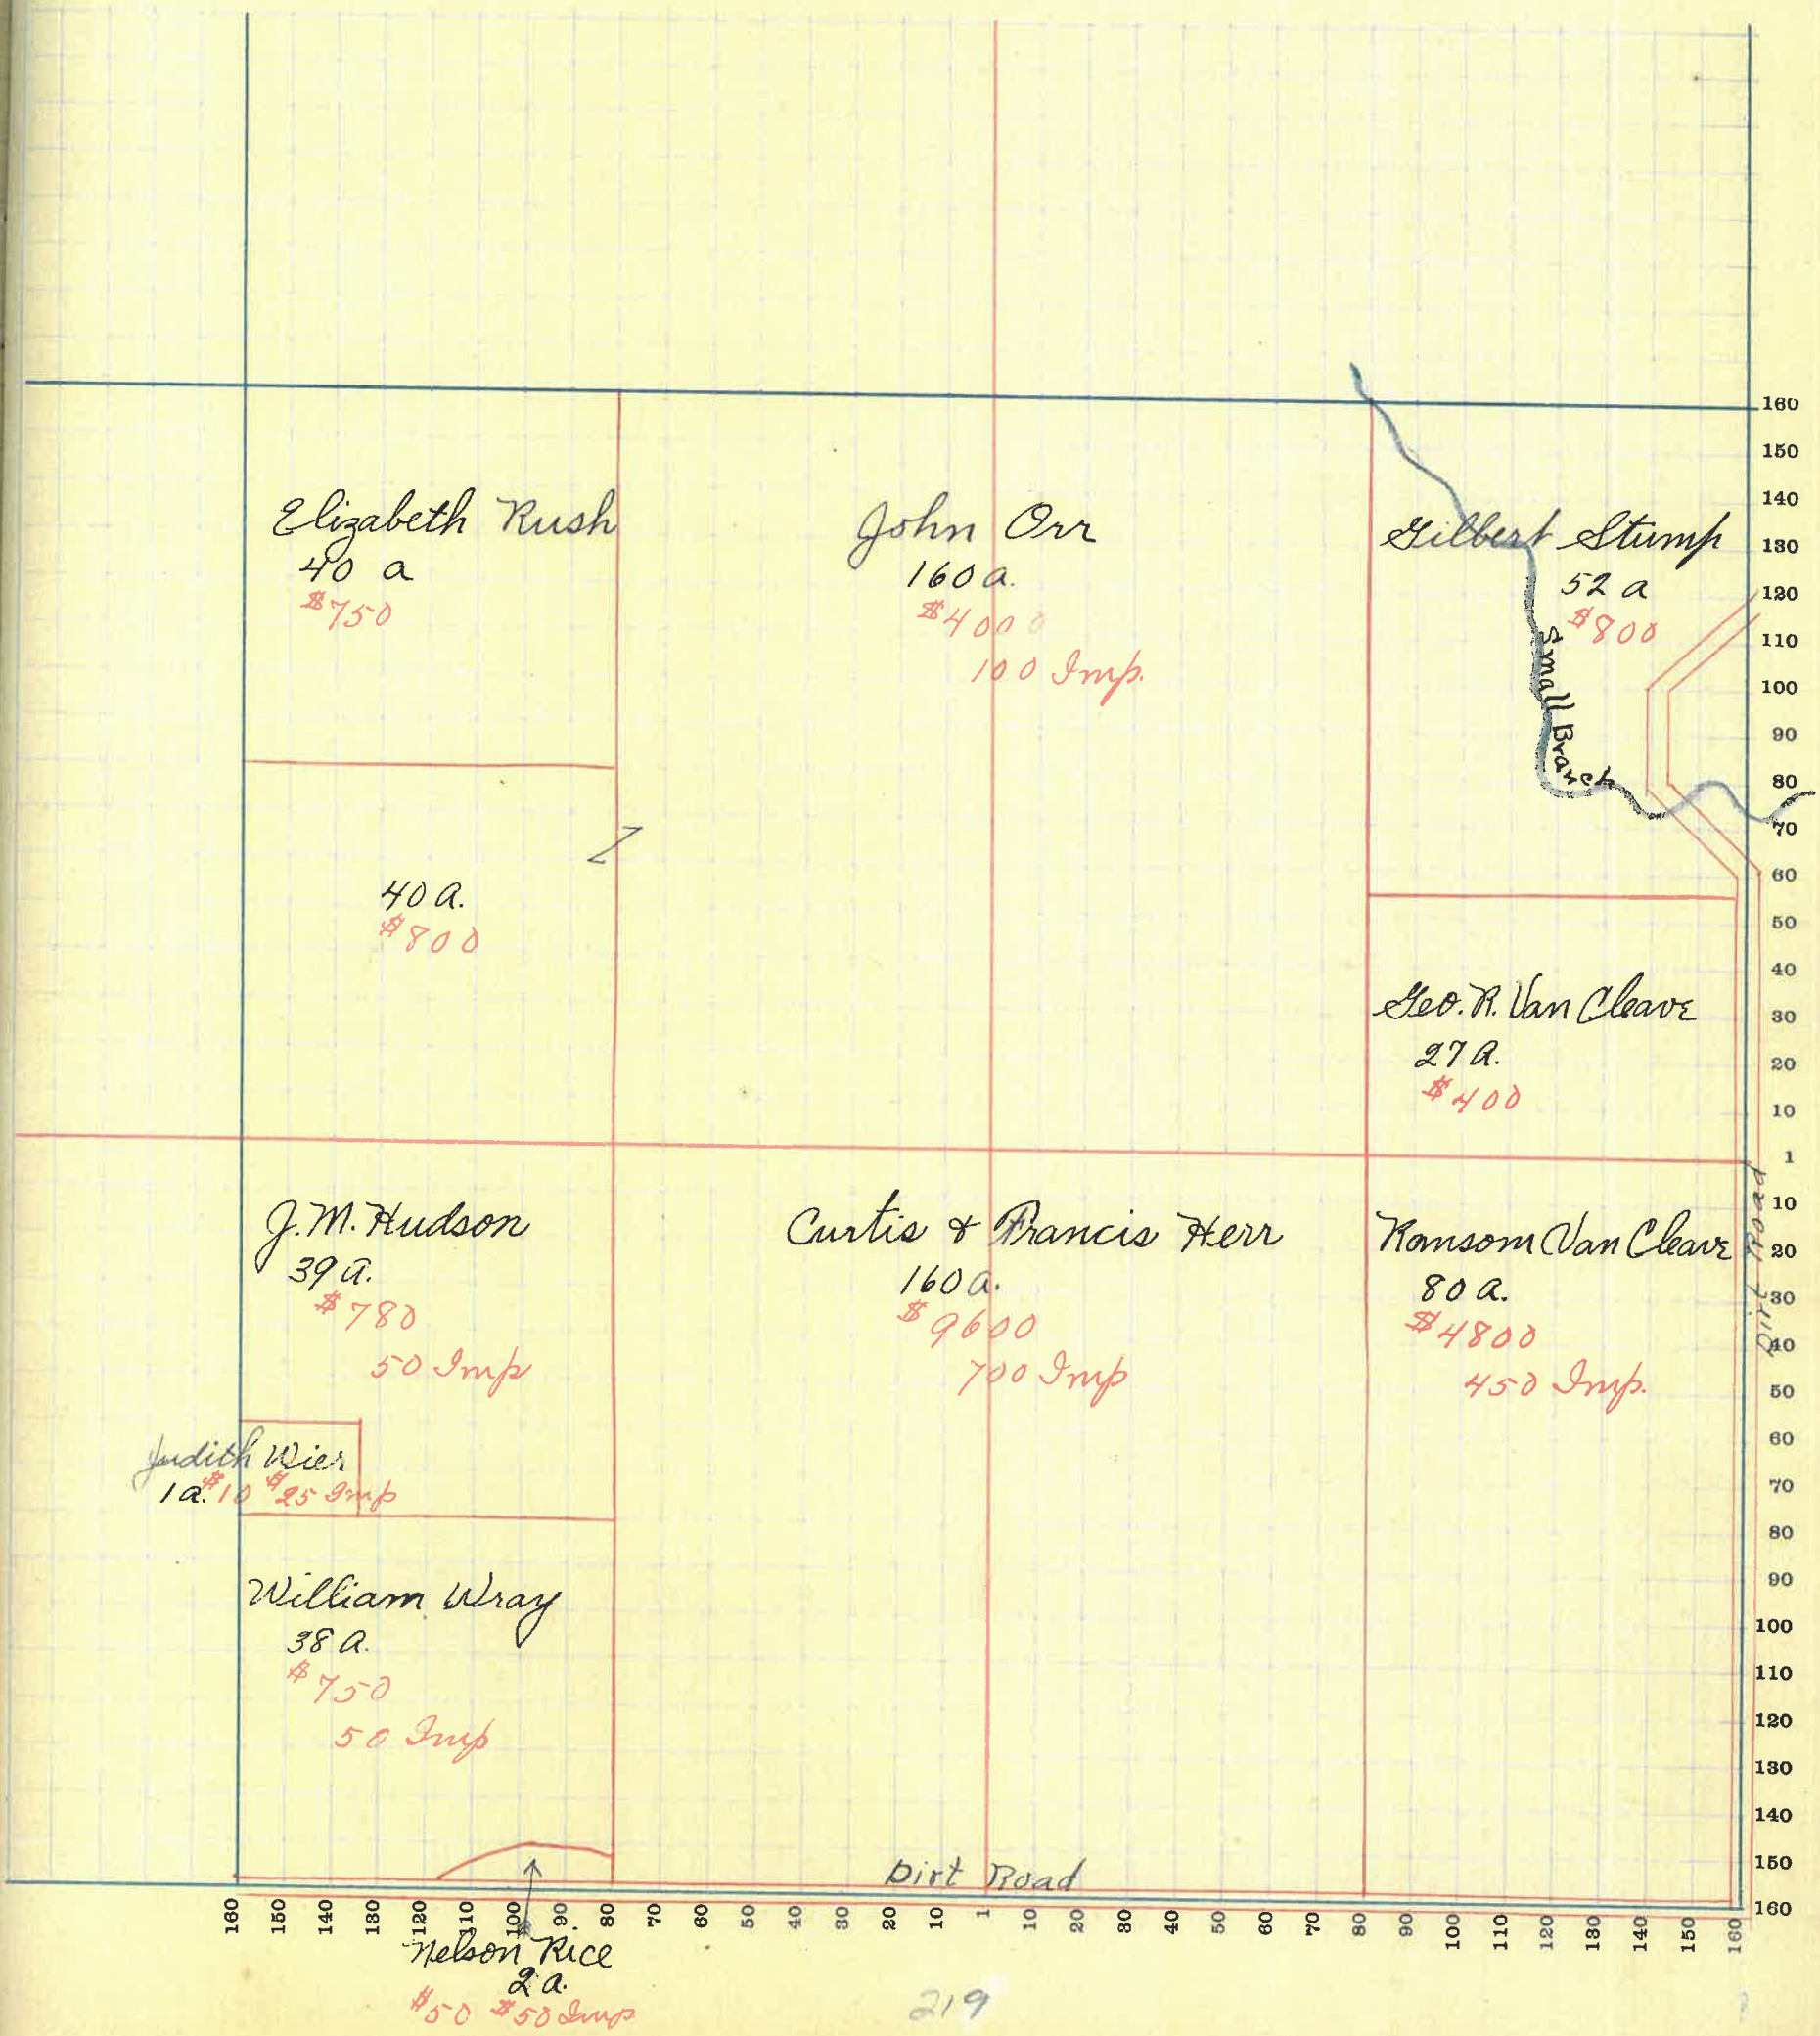 Elizabeth Rush
40 a
$750
John Orr
160 a.
$4000
100 Imp.
Gilbert Stump
52 a
$800
Small Branch
40 a.
$800
Geo. R. Van Cleave
27 a.
$400
J. M. Hudson
39 a.
$780
50 Imp
Curtis & Francis Herr
160 a.
$9600
700 Imp
Ransom Van Cleave
80 a.
$4800
450 Imp.
Dirt Road
Judith Wier
1 a. $10 $25 Imp
William Wray
38 a.
$750
50 Imp
Dirt Road
160
150
140
130
120
110
100
90
80
70
60
50
40
30
20
10
1
10
20
30
40
50
60
70
80
90
100
110
120
130
140
150
160
160 150 140 130 120 110 100 90 80 70 60 50 40 30 20 10 1 10 20 30 40 50 60 70 80 90 100 110 120 130 140 150 160
Nelson Rice
2 a.
$50 $50 Imp
219